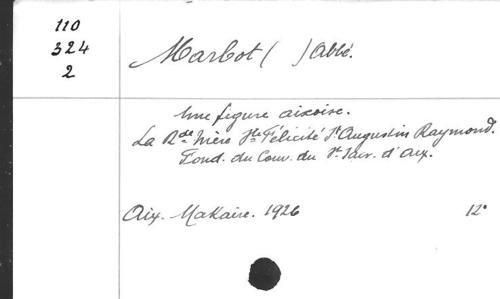 110
324
2
Marbot ( ) Abbé.
Une figure aixoise.
La Rde Mère Ste Félicité St Augustin Raymond.
Fond. du Couv. du St Sacr. d'Aix.
Aix. Makaire. 1926 12°